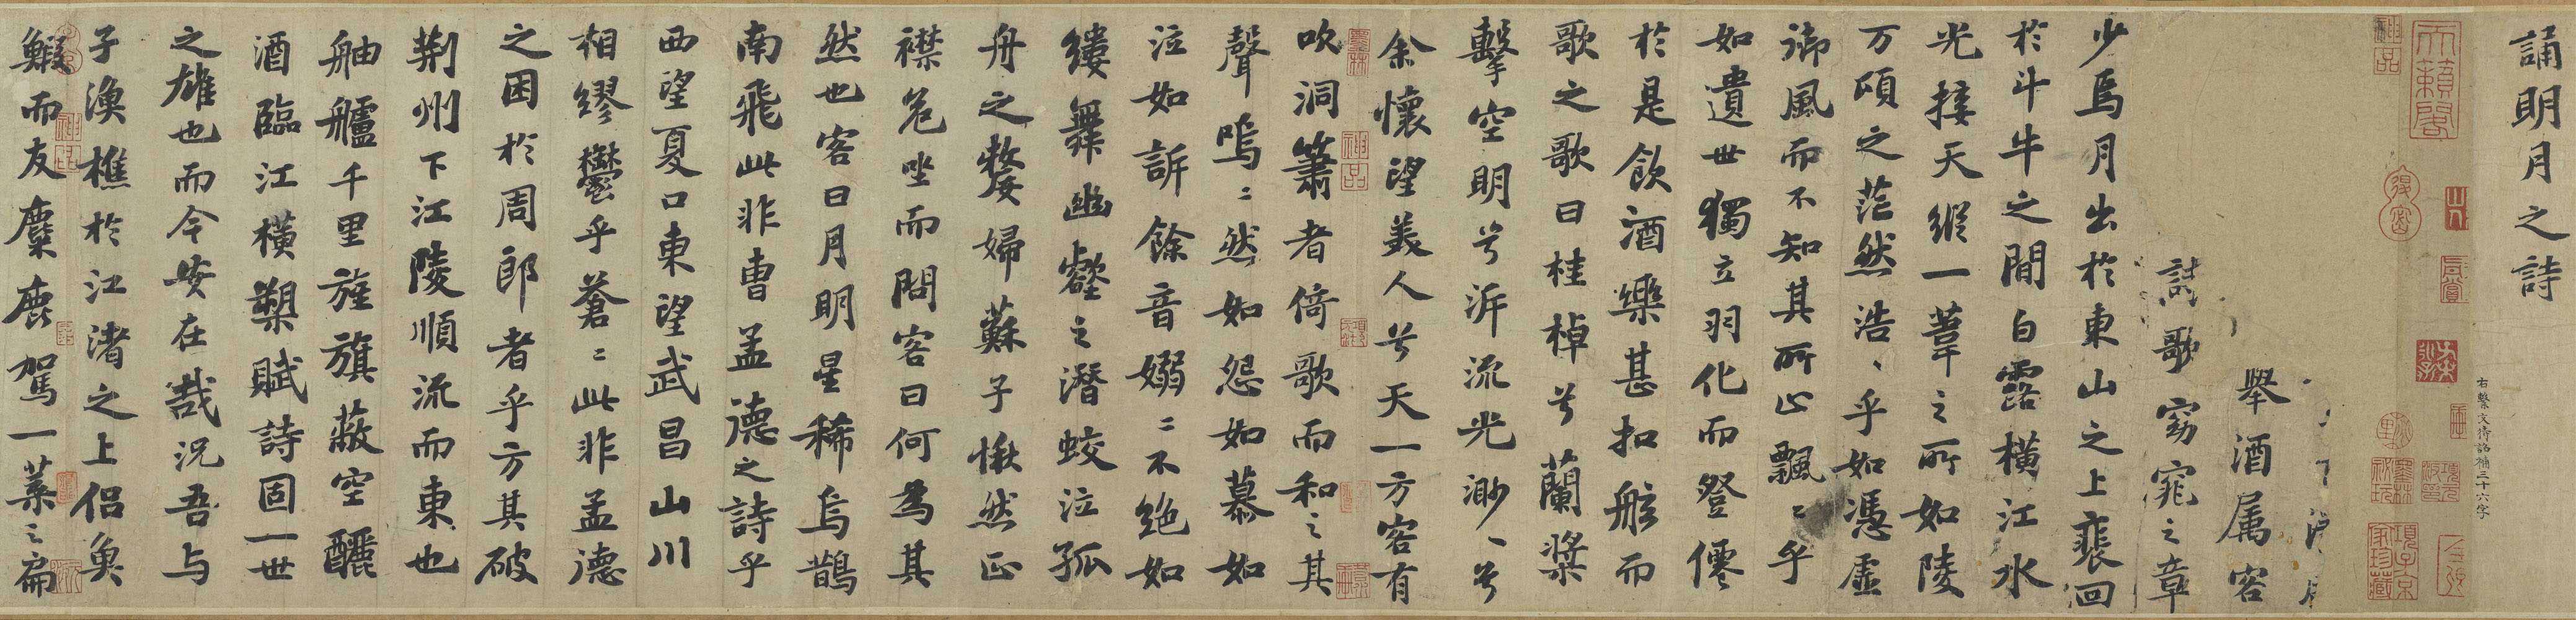 誦明月之詩
右繫文待詔補三十六字
天籟閣
神品
舉酒属客
詩歌窈窕之章
少焉月出於東山之上裴回
於斗牛之間白露橫江水
光接天縱一葦之所如陵
万頃之茫然浩、乎如憑虛
御風而不知其所止飄〻乎
如遺世獨立羽化而登僊
於是飲酒樂甚扣舷而
歌之歌曰桂棹兮蘭槳
擊空明兮泝流光渺、兮
余懷望美人兮天一方客有
吹洞簫者倚歌而和之其
聲嗚〻然如怨如慕如
泣如訴餘音嫋〻不絕如
縷舞幽壑之潛蛟泣孤
舟之嫠婦蘇子愀然正
襟危坐而問客曰何為其
然也客曰月明星稀烏鵲
南飛此非曹孟德之詩乎
西望夏口東望武昌山川
相繆鬱乎蒼〻此非孟德
之困於周郎者乎方其破
荊州下江陵順流而東也
舳艫千里旌旗蔽空釃
酒臨江橫槊賦詩固一世
之雄也而今安在哉況吾与
子漁樵於江渚之上侶魚
鰕而友麋鹿駕一葉之扁